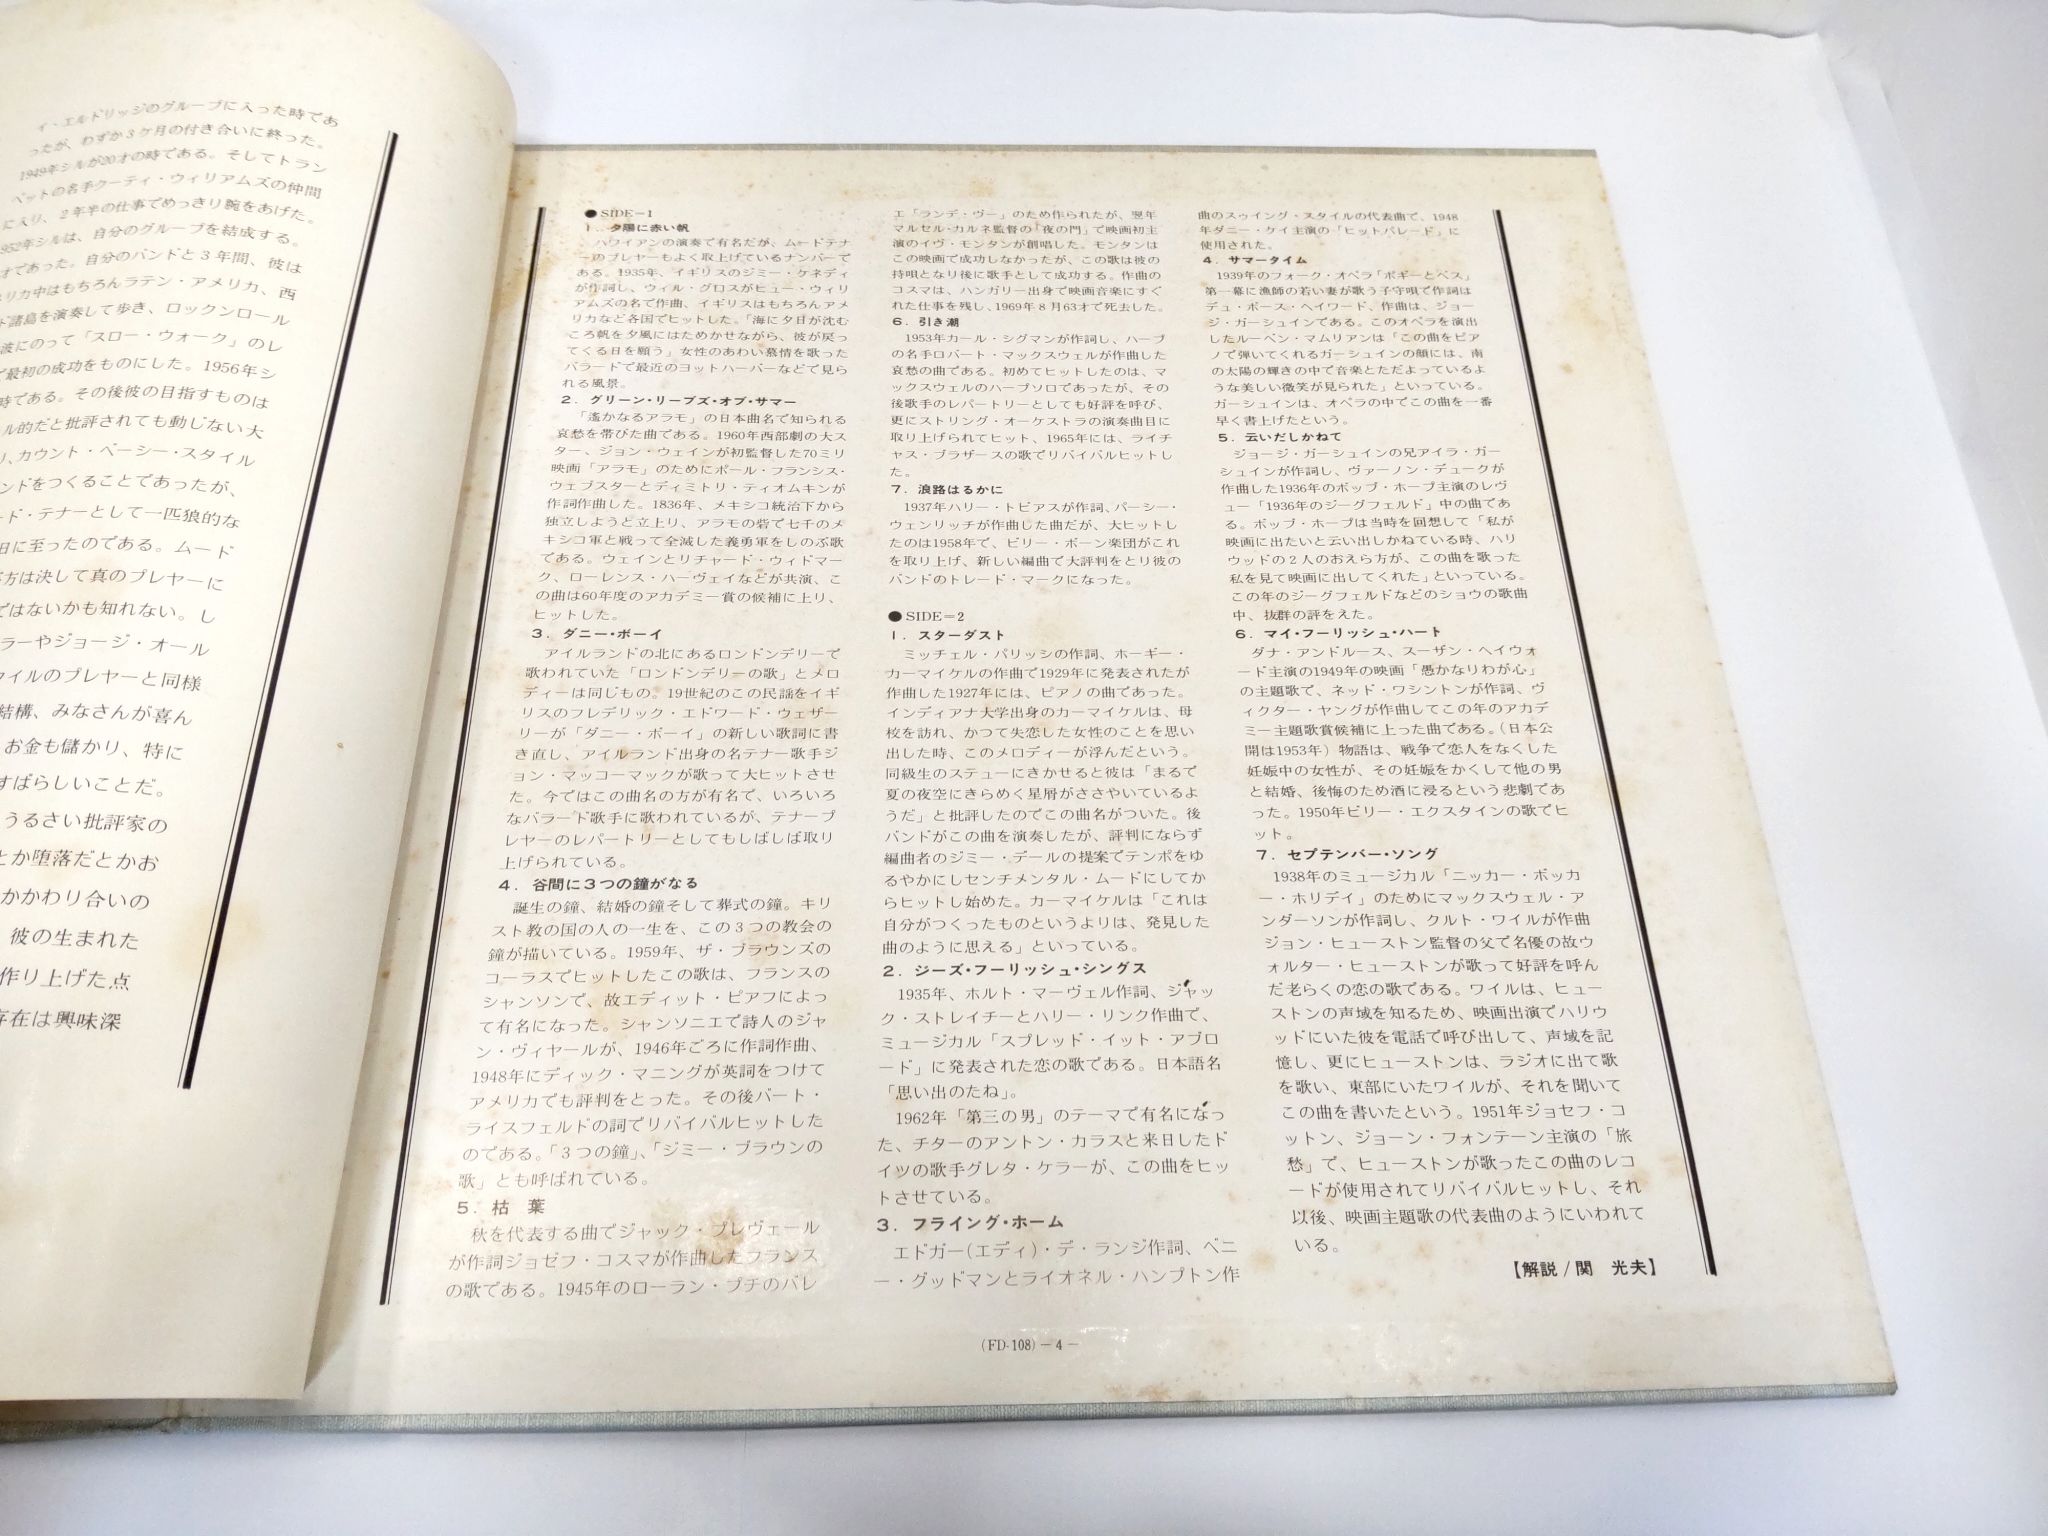 イ・エルドリッジのグループに入った時であ
ったが、わずか3ケ月の付き合いに終った。
1949年シルが20才の時である。そしてトラン
ペットの名手クーティ・ウィリアムズの仲間
に入り、2年半の仕事でめっきり腕をあげた。
952年シルは、自分のグループを結成する。
才であった。自分のバンドと3年間、彼は
メリカ中はもちろんラテン・アメリカ、西
ド諸島を演奏して歩き、ロックンロール
波にのって「スロー・ウォーク」のレ
で最初の成功をものにした。1956年シ
時である。その後彼の目指すものは
ル的だと批評されても動じない大
り、カウント・ベーシー・スタイル
ンドをつくることであったが、
ード・テナーとして一匹狼的な
日に至ったのである。ムード
方は決して真のプレヤーに
ではないかも知れない。し
ラーやジョージ・オール
タイルのプレヤーと同様
結構、みなさんが喜ん
お金も儲かり、特に
すばらしいことだ。
うるさい批評家の
とか堕落だとかお
かかわり合いの
彼の生まれた
作り上げた点
存在は興味深
●SIDE=1
1. 夕陽に赤い帆
ハワイアンの演奏で有名だが、ムードテナ
ーのプレヤーもよく取上げているナンバーで
ある。1935年、イギリスのジミー・ケネディ
が作詞し、ウィル・グロスがヒュー・ウィリ
アムズの名で作曲、イギリスはもちろんアメ
リカなど各国でヒットした。「海に夕日が沈む
ころ帆を夕風にはためかせながら、彼が戻っ
てくる日を願う」女性のあわい慕情を歌った
バラードで最近のヨットハーバーなどで見ら
れる風景。
2. グリーン・リーブズ・オブ・サマー
「遙かなるアラモ」の日本曲名で知られる
哀愁を帯びた曲である。1960年西部劇の大ス
ター、ジョン・ウェインが初監督した70ミリ
映画「アラモ」のためにポール・フランシス・
ウェブスターとディミトリ・ティオムキンが
作詞作曲した。1836年、メキシコ統治下から
独立しようと立上り、アラモの砦で七千のメ
キシコ軍と戦って全滅した義勇軍をしのぶ歌
である。ウェインとリチャード・ウィドマー
ク、ローレンス・ハーヴェイなどが共演、こ
の曲は60年度のアカデミー賞の候補に上り、
ヒットした。
3. ダニー・ボーイ
アイルランドの北にあるロンドンデリーで
歌われていた「ロンドンデリーの歌」とメロ
ディーは同じもの。19世紀のこの民謡をイギ
リスのフレデリック・エドワード・ウェザー
リーが「ダニー・ボーイ」の新しい歌詞に書
き直し、アイルランド出身の名テナー歌手ジ
ョン・マッコーマックが歌って大ヒットさせ
た。今ではこの曲名の方が有名で、いろいろ
なバラード歌手に歌われているが、テナープ
レヤーのレパートリーとしてもしばしば取り
上げられている。
4. 谷間に3つの鐘がなる
誕生の鐘、結婚の鐘そして葬式の鐘。キリ
スト教の国の人の一生を、この3つの教会の
鐘が描いている。1959年、ザ・ブラウンズの
コーラスでヒットしたこの歌は、フランスの
シャンソンで、故エディット・ピアフによっ
て有名になった。シャンソニエで詩人のジャ
ン・ヴィヤールが、1946年ごろに作詞作曲、
1948年にディック・マニングが英詞をつけて
アメリカでも評判をとった。その後バート・
ライスフェルドの詞でリバイバルヒットした
のである。「3つの鐘」、「ジミー・ブラウンの
歌」とも呼ばれている。
5. 枯 葉
秋を代表する曲でジャック・プレヴェール
が作詞ジョゼフ・コスマが作曲したフランス
の歌である。1945年のローラン・プチのバレ
エ「ランデ・ヴー」のため作られたが、翌年
マルセル・カルネ監督の「夜の門」で映画初主
演のイヴ・モンタンが創唱した。モンタンは
この映画で成功しなかったが、この歌は彼の
持唄となり後に歌手として成功する。作曲の
コスマは、ハンガリー出身で映画音楽にすぐ
れた仕事を残し、1969年8月63才で死去した。
6. 引き潮
1953年カール・シグマンが作詞し、ハープ
の名手ロバート・マックスウェルが作曲した
哀愁の曲である。初めてヒットしたのは、マ
ックスウェルのハープソロであったが、その
後歌手のレパートリーとしても好評を呼び、
更にストリング・オーケストラの演奏曲目に
取り上げられてヒット、1965年には、ライチ
ャス・ブラザースの歌でリバイバルヒットし
た。
7. 浪路はるかに
1937年ハリー・トビアスが作詞、パーシー・
ウェンリッチが作曲した曲だが、大ヒットし
たのは1958年で、ビリー・ボーン楽団がこれ
を取り上げ、新しい編曲で大評判をとり彼の
バンドのトレード・マークになった。
●SIDE=2
1. スターダスト
ミッチェル・パリッシの作詞、ホーギー・
カーマイケルの作曲で1929年に発表されたが
作曲した1927年には、ピアノの曲であった。
インディアナ大学出身のカーマイケルは、母
校を訪れ、かつて失恋した女性のことを思い
出した時、このメロディーが浮んだという。
同級生のステューにきかせると彼は「まるで
夏の夜空にきらめく星屑がささやいているよ
うだ」と批評したのでこの曲名がついた。後
バンドがこの曲を演奏したが、評判にならず
編曲者のジミー・デールの提案でテンポをゆ
るやかにしセンチメンタル・ムードにしてか
らヒットし始めた。カーマイケルは「これは
自分がつくったものというよりは、発見した
曲のように思える」といっている。
2. ジーズ・フーリッシュ・シングス
1935年、ホルト・マーヴェル作詞、ジャッ
ク・ストレイチーとハリー・リンク作曲で、
ミュージカル「スプレッド・イット・アブロ
ード」に発表された恋の歌である。日本語名
「思い出のたね」。
1962年「第三の男」のテーマで有名になっ
た、チターのアントン・カラスと来日したド
イツの歌手グレタ・ケラーが、この曲をヒッ
トさせている。
3. フライング・ホーム
エドガー(エディ)・デ・ランジ作詞、ベニ
ー・グッドマンとライオネル・ハンプトン作
曲のスゥイング・スタイルの代表曲で、1948
年ダニー・ケイ主演の「ヒットパレード」に
使用された。
4. サマータイム
1939年のフォーク・オペラ「ポギーとベス」
第一幕に漁師の若い妻が歌う子守唄で作詞は
デュ・ボース・ヘイワード、作曲は、ジョー
ジ・ガーシュインである。このオペラを演出
したルーベン・マムリアンは「この曲をピア
ノで弾いてくれるガーシュインの顔には、南
の太陽の輝きの中で音楽とただよっているよ
うな美しい微笑が見られた」といっている。
ガーシュインは、オペラの中でこの曲を一番
早く書上げたという。
5. 云いだしかねて
ジョージ・ガーシュインの兄アイラ・ガー
シュインが作詞し、ヴァーノン・デュークが
作曲した1936年のボッブ・ホープ主演のレヴ
ュー「1936年のジーグフェルド」中の曲であ
る。ボッブ・ホープは当時を回想して「私が
映画に出たいと云い出しかねている時、ハリ
ウッドの2人のおえら方が、この曲を歌った
私を見て映画に出してくれた」といっている。
この年のジーグフェルドなどのショウの歌曲
中、抜群の評をえた。
6. マイ・フーリッシュ・ハート
ダナ・アンドルース、スーザン・ヘイウォ
ード主演の1949年の映画「愚かなりわが心」
の主題歌で、ネッド・ワシントンが作詞、ヴ
ィクター・ヤングが作曲してこの年のアカデ
ミー主題歌賞候補に上った曲である。(日本公
開は1953年)物語は、戦争で恋人をなくした
妊娠中の女性が、その妊娠をかくして他の男
と結婚、後悔のため酒に浸るという悲劇であ
った。1950年ビリー・エクスタインの歌でヒ
ット。
7. セプテンバー・ソング
1938年のミュージカル「ニッカー・ボッカ
ー・ホリデイ」のためにマックスウェル・ア
ンダーソンが作詞し、クルト・ワイルが作曲
ジョン・ヒューストン監督の父で名優の故ウ
ォルター・ヒューストンが歌って好評を呼ん
だ老らくの恋の歌である。ワイルは、ヒュー
ストンの声域を知るため、映画出演でハリウ
ッドにいた彼を電話で呼び出して、声域を記
憶し、更にヒューストンは、ラジオに出て歌
を歌い、東部にいたワイルが、それを聞いて
この曲を書いたという。1951年ジョセフ・コ
ットン、ジョーン・フォンテーン主演の「旅
愁」で、ヒューストンが歌ったこの曲のレコ
ードが使用されてリバイバルヒットし、それ
以後、映画主題歌の代表曲のようにいわれて
いる。
【解説/関 光夫】
(FD-108)－4－